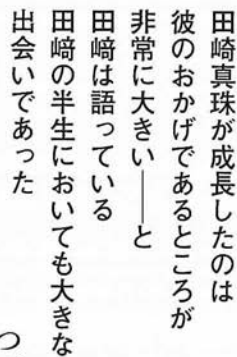 田崎真珠が成長したのは
彼のおかげであるところが
非常に大きい――と
田﨑は語っている
田﨑の半生においても大きな
出会いであった
つ